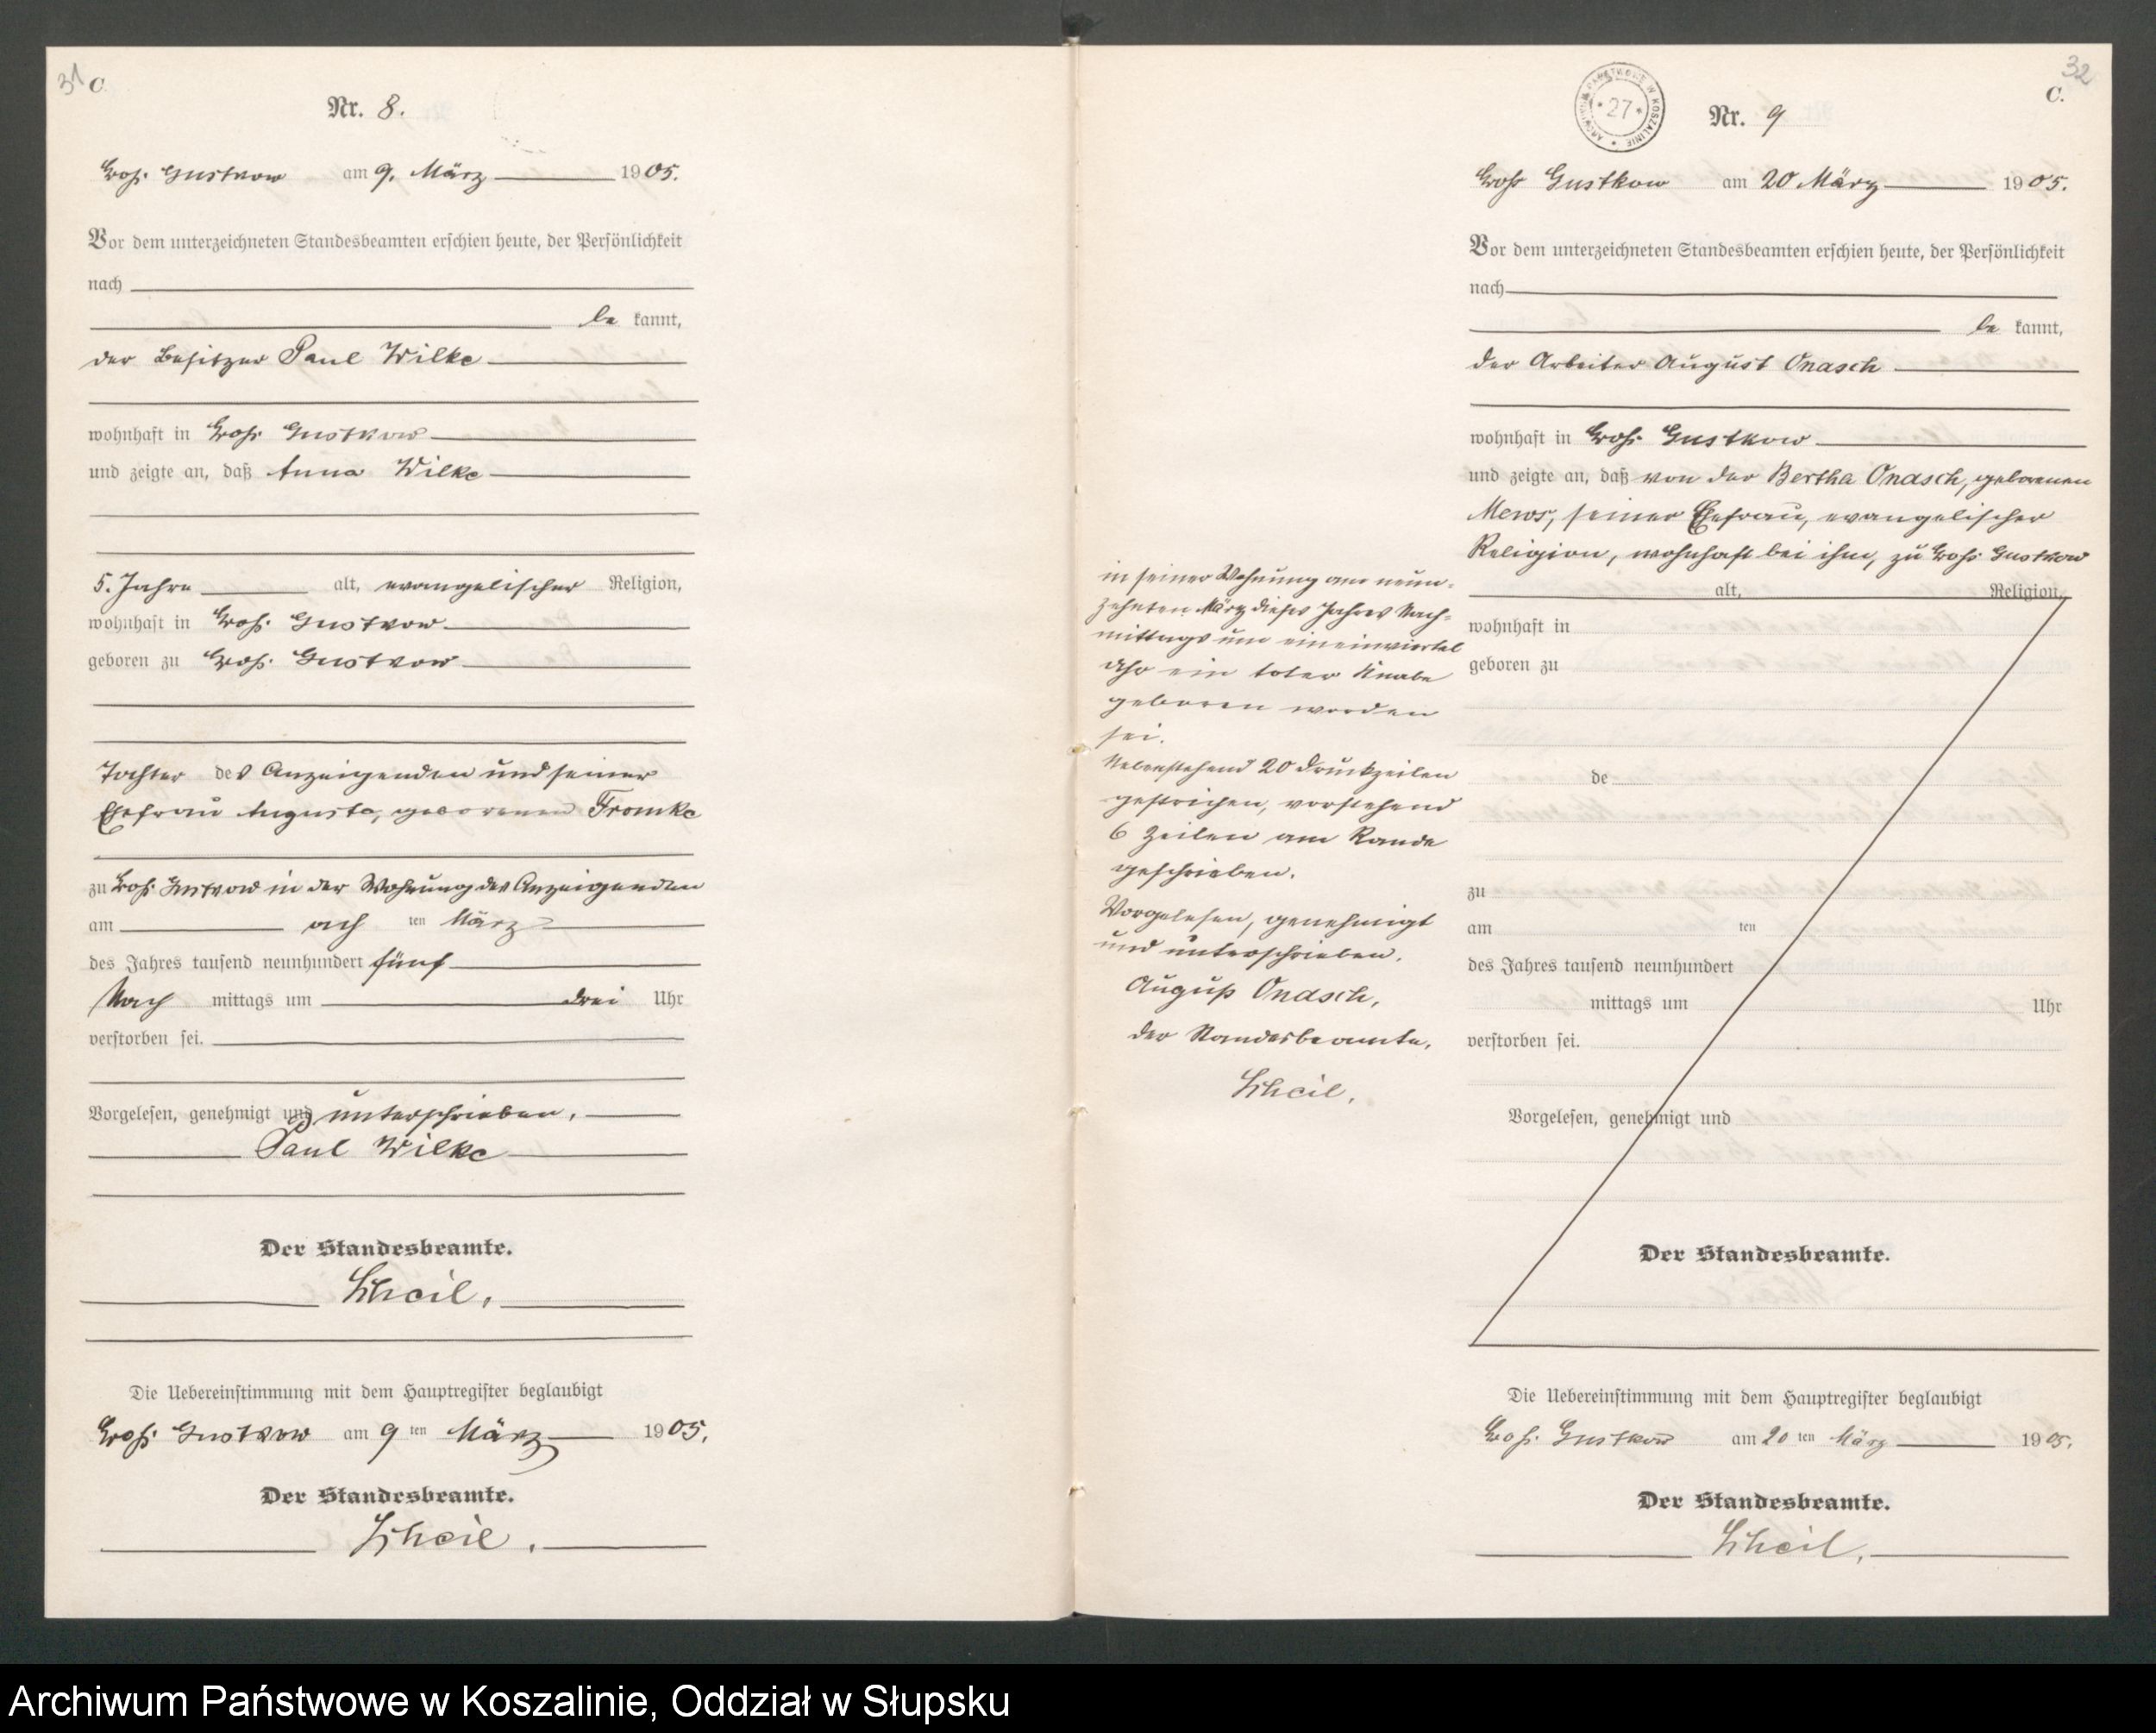 31 C.
Nr. 8.
Groß Gustkow am 9. März 1905.
Vor dem unterzeichneten Standesbeamten erschien heute, der Persönlichkeit
nach
be kannt,
der Besitzer Paul Wilke
wohnhaft in Groß Gustkow
und zeigte an, daß Anna Wilke
5 Jahre alt, evangelischer Religion,
wohnhaft in Groß Gustkow
geboren zu Groß Gustkow
Tochter des Anzeigenden und seiner
Ehefrau Auguste, geborenen Fromke
zu Groß Gustkow in der Wohnung des Anzeigenden
am acht ten März
des Jahres tausend neunhundert fünf
Nach mittags um drei Uhr
verstorben sei.
Vorgelesen, genehmigt und unterschrieben.
Paul Wilke
Der Standesbeamte.
Scheil.
Die Uebereinstimmung mit dem Hauptregister beglaubigt
Groß Gustkow am 9 ten März 1905.
Der Standesbeamte.
Scheil.
32
C.
ARCHIWUM PAŃSTWOWE W KOSZALINIE * 27 *
Nr. 9
Groß Gustkow am 20 März 1905.
Vor dem unterzeichneten Standesbeamten erschien heute, der Persönlichkeit
nach
be kannt,
der Arbeiter August Onasch
wohnhaft in Groß Gustkow
und zeigte an, daß von der Bertha Onasch, geborenen
Mews, seiner Ehefrau, evangelischer
Religion, wohnhaft bei ihm, zu Groß Gustkow
alt, Religion,
wohnhaft in
geboren zu
de
zu
am ten
des Jahres tausend neunhundert
mittags um Uhr
verstorben sei.
Vorgelesen, genehmigt und
Der Standesbeamte.
in seiner Wohnung am neun-
zehnten März dieses Jahres Nach-
mittags um ein einviertel
Uhr ein toter Knabe
geboren worden
sei.
Nebenstehend 20 Druckzeilen
gestrichen, vorstehend
6 Zeilen am Rande
geschrieben.
Vorgelesen, genehmigt
und unterschrieben.
August Onasch,
der Standesbeamte.
Scheil.
Die Uebereinstimmung mit dem Hauptregister beglaubigt
Groß Gustkow am 20 ten März 1905.
Der Standesbeamte.
Scheil.
Archiwum Państwowe w Koszalinie, Oddział w Słupsku